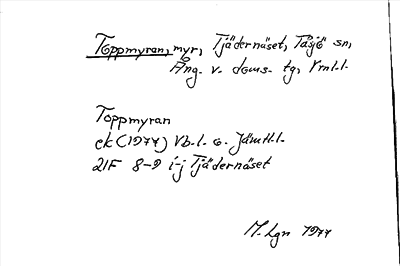 Toppmyran, myr, Tjädernäset, Tåsjö sn,
Ång. v. doms. tg, Vrnl.l.
Toppmyran
ek (1977) Vb.l. o. Jämtl.l.
21F 8-9 i-j Tjädernäset
M. Lgn 1977